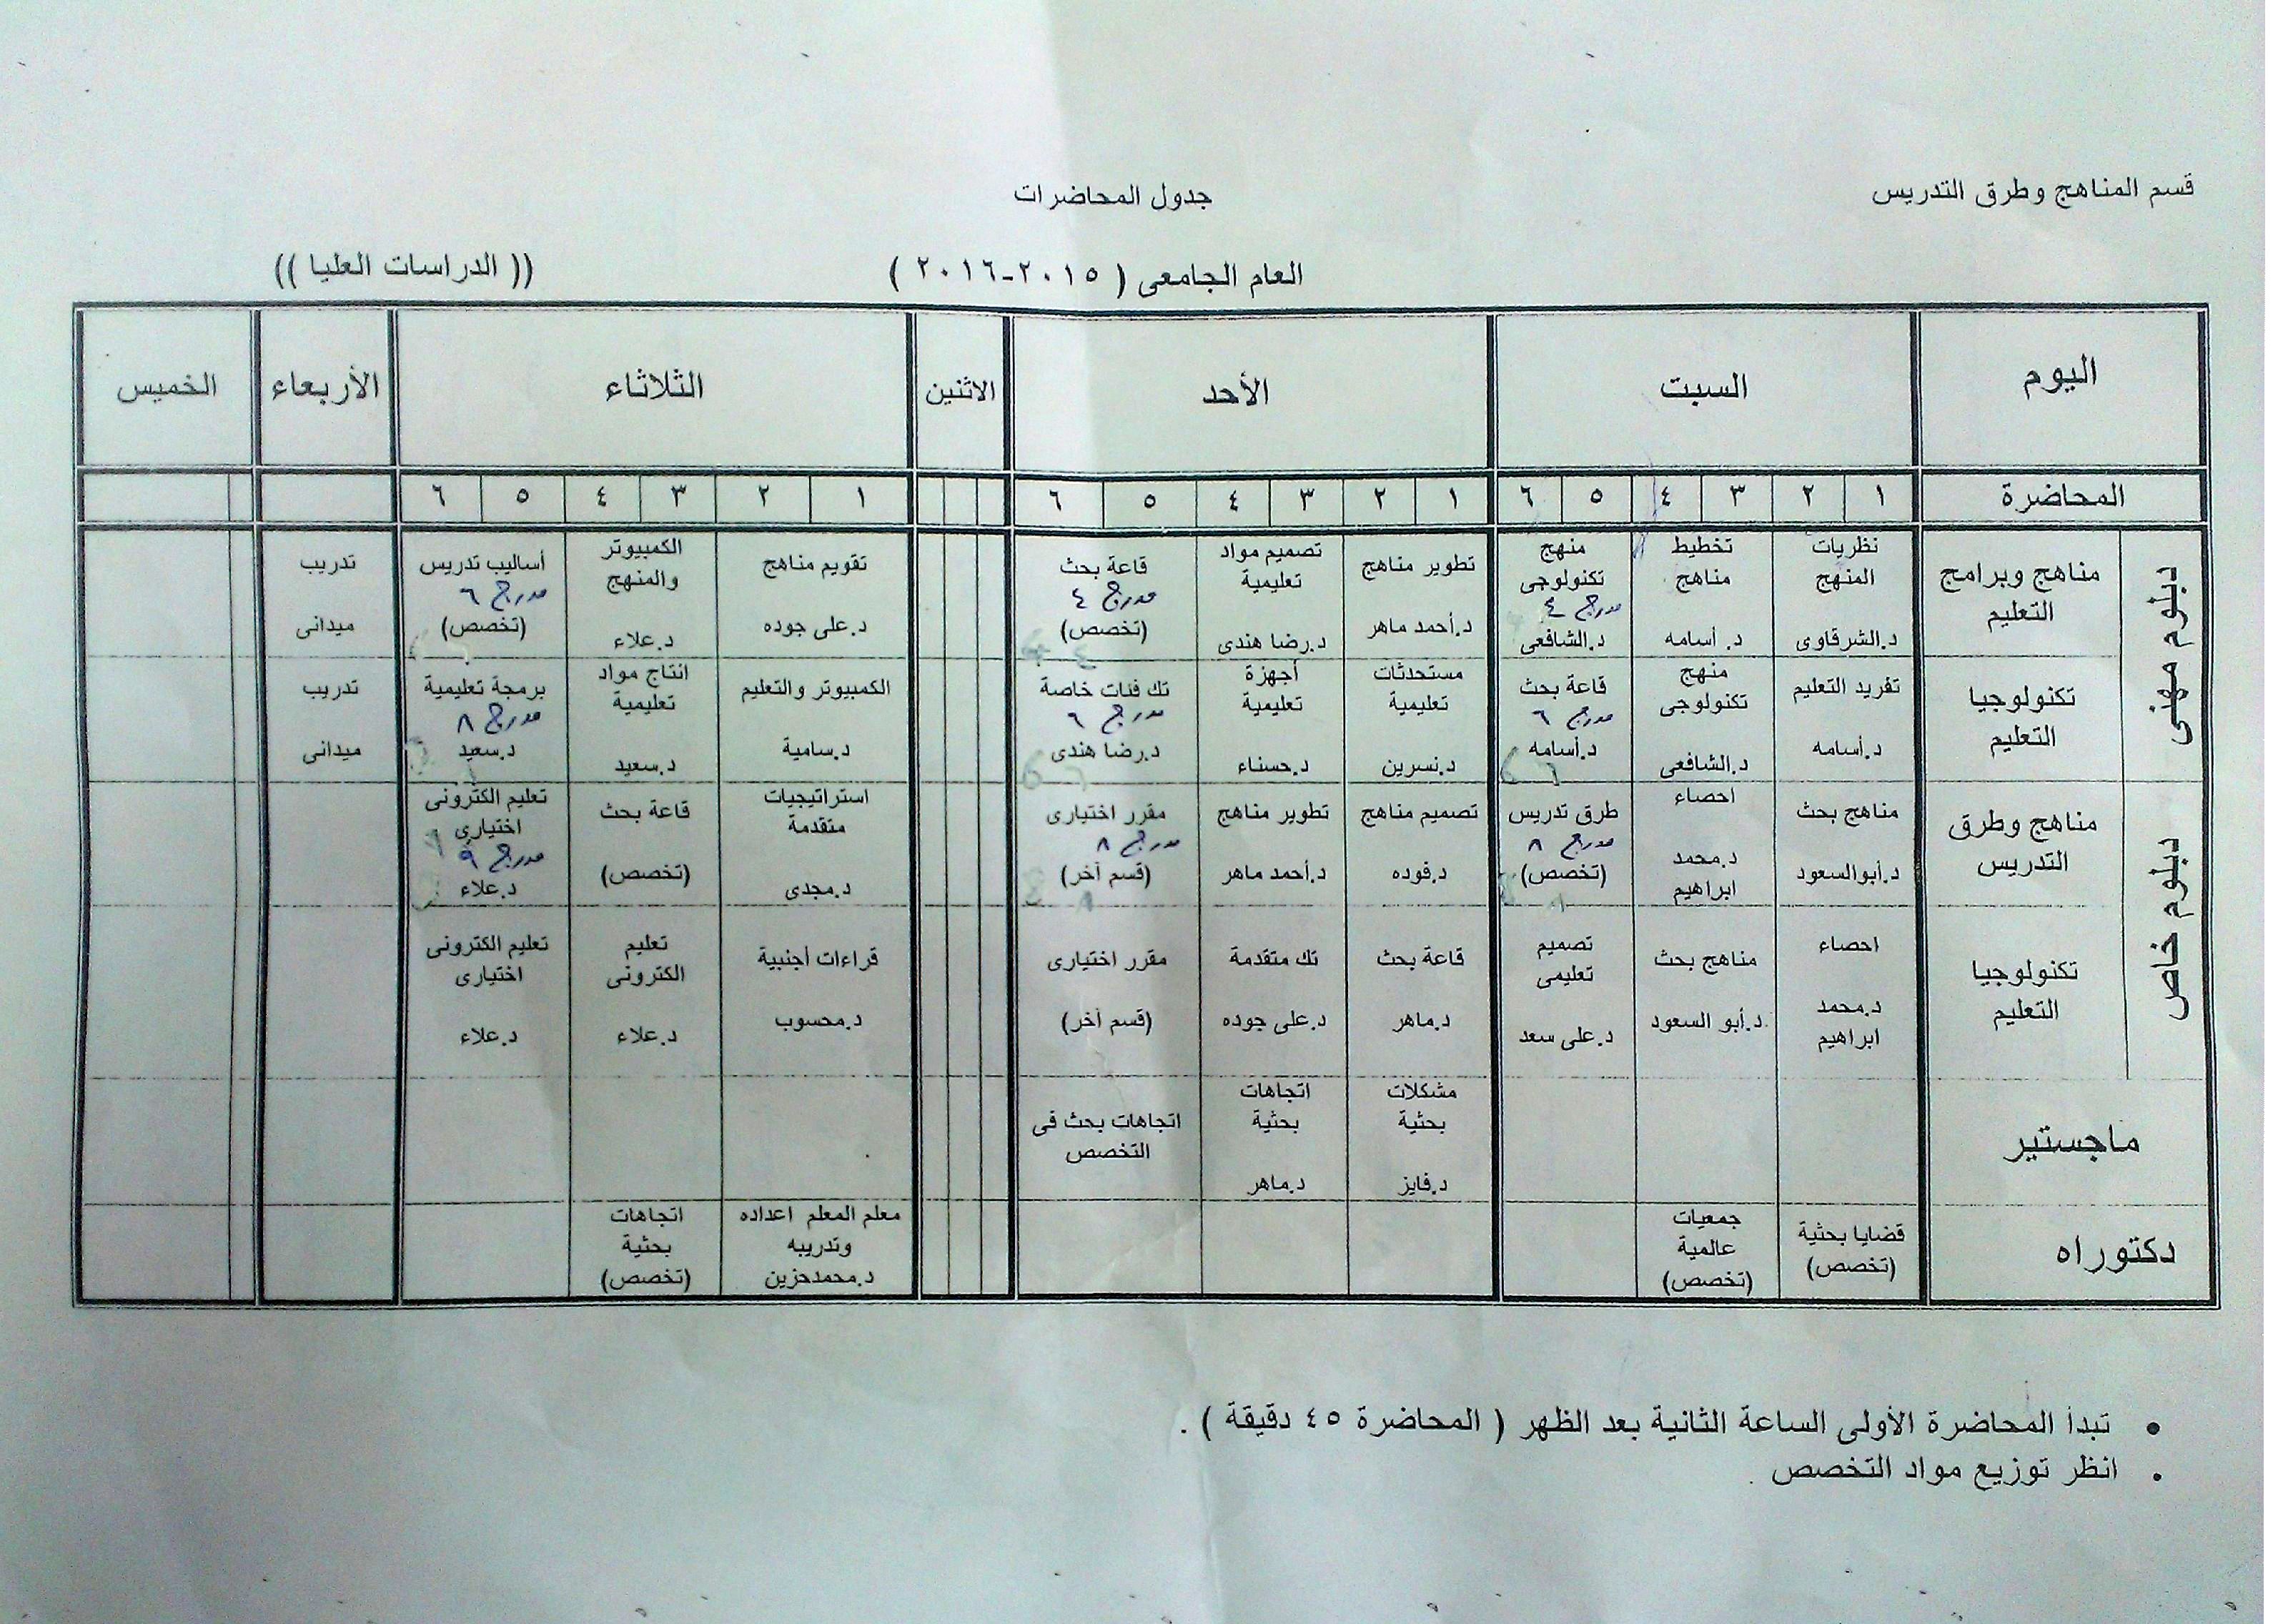 قسم المناهج وطرق التدريس
جدول المحاضرات
العام الجامعى ( ٢٠١٥-٢٠١٦ )
(( الدراسات العليا ))
اليوم السبت الأحد الاثنين الثلاثاء الأربعاء الخميس
المحاضرة ١ ٢ ٣ ٤ ٥ ٦ ١ ٢ ٣ ٤ ٥ ٦ ١ ٢ ٣ ٤ ٥ ٦
دبلوم مهنى
مناهج وبرامج
التعليم
نظريات
المنهج
د.الشرقاوى
تخطيط
مناهج
د. أسامه
منهج
تكنولوجى
مدرج ٤
د.الشافعى
تطوير مناهج
د.أحمد ماهر
تصميم مواد
تعليمية
د.رضا هندى
قاعة بحث
مدرج ٤
(تخصص)
تقويم مناهج
د.على جوده
الكمبيوتر
والمنهج
د.علاء
أساليب تدريس
مدرج ٦
(تخصص)
تدريب
ميدانى
تكنولوجيا
التعليم
تفريد التعليم
د.أسامه
منهج
تكنولوجى
د.الشافعى
قاعة بحث
مدرج ٦
د.أسامه
مستحدثات
تعليمية
د.نسرين
أجهزة
تعليمية
د.حسناء
تك فئات خاصة
مدرج ٦
د.رضا هندى
الكمبيوتر والتعليم
د.سامية
انتاج مواد
تعليمية
د.سعيد
برمجة تعليمية
مدرج ٨
د.سعيد
تدريب
ميدانى
دبلوم خاص
مناهج وطرق
التدريس
مناهج بحث
د.أبوالسعود
احصاء
د.محمد
ابراهيم
طرق تدريس
مدرج ٨
(تخصص)
تصميم مناهج
د.فوده
تطوير مناهج
د.أحمد ماهر
مقرر اختيارى
مدرج ٨
(قسم آخر)
استراتيجيات
متقدمة
د.مجدى
قاعة بحث
(تخصص)
تعليم الكترونى
اختيارى
مدرج ٩
د.علاء
تكنولوجيا
التعليم
احصاء
د.محمد
ابراهيم
مناهج بحث
د.أبو السعود
تصميم
تعليمى
د.على سعد
قاعة بحث
د.ماهر
تك متقدمة
د.على جوده
مقرر اختيارى
(قسم آخر)
قراءات أجنبية
د.محسوب
تعليم
الكترونى
د.علاء
تعليم الكترونى
اختيارى
د.علاء
ماجستير
مشكلات
بحثية
د.فايز
اتجاهات
بحثية
د.ماهر
اتجاهات بحث فى
التخصص
دكتوراه
قضايا بحثية
(تخصص)
جمعيات
عالمية
(تخصص)
معلم المعلم اعداده
وتدريبه
د.محمدحزين
اتجاهات
بحثية
(تخصص)
• تبدأ المحاضرة الأولى الساعة الثانية بعد الظهر ( المحاضرة ٤٥ دقيقة ) .
• انظر توزيع مواد التخصص